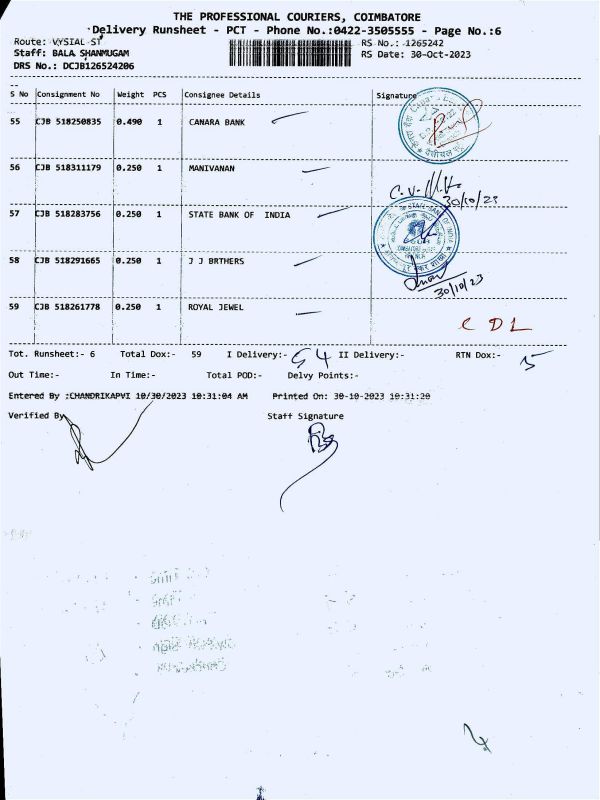 THE PROFESSIONAL COURIERS, COIMBATORE
Delivery Runsheet - PCT - Phone No.:0422-3505555 - Page No.:6
Route: VYSIAL ST
RS No.: 1265242
Staff: BALA SHANMUGAM
RS Date: 30-Oct-2023
DRS No.: DCJB126524206
S No Consignment No Weight PCS Consignee Details Signature
55 CJB 518250835 0.490 1 CANARA BANK
56 CJB 518311179 0.250 1 MANIVANAN
30/10/23
57 CJB 518283756 0.250 1 STATE BANK OF INDIA
58 CJB 518291665 0.250 1 J J BRTHERS
30/10/23
59 CJB 518261778 0.250 1 ROYAL JEWEL
CDL
Tot. Runsheet:- 6 Total Dox:- 59 I Delivery:- 54 II Delivery:- RTN Dox:- 5
Out Time:- In Time:- Total POD:- Delvy Points:-
Entered By :CHANDRIKAPVI 10/30/2023 10:31:04 AM Printed On: 30-10-2023 10:31:20
Verified By Staff Signature